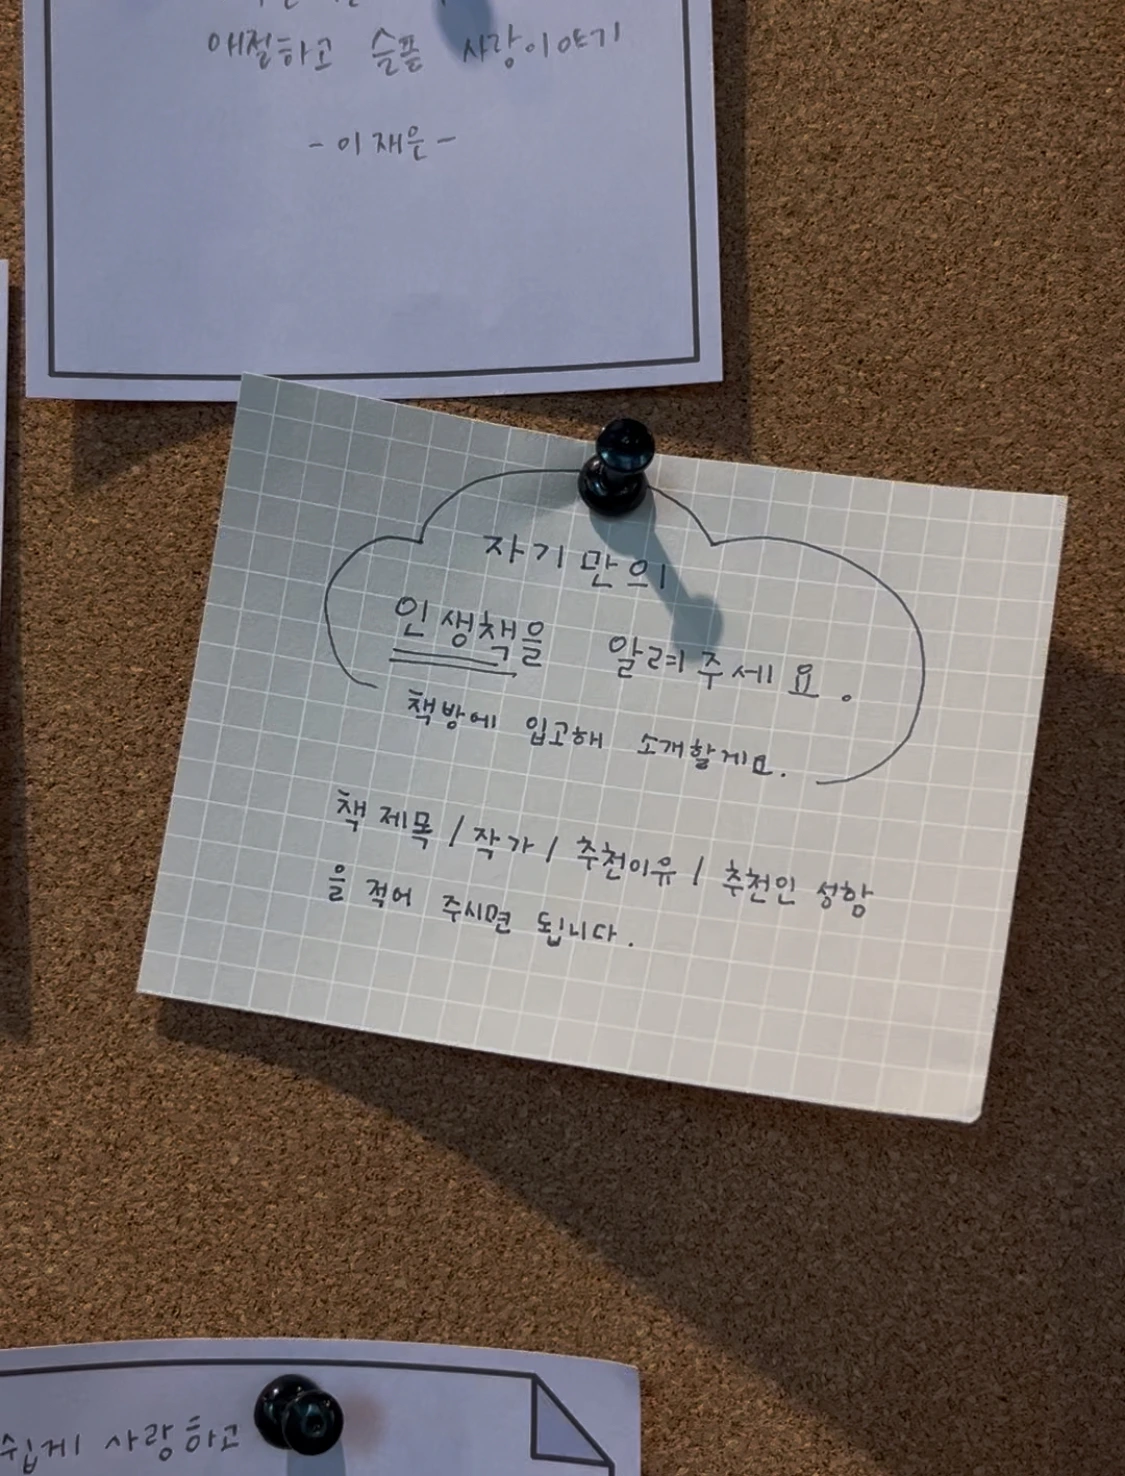 애절하고 슬픈 사랑이야기
- 이재은 -
자기만의
인생책을 알려주세요.
책방에 입고해 소개할게요.
책 제목 / 작가 / 추천이유 / 추천인 성함
을 적어 주시면 됩니다.
쉽게 사랑하고